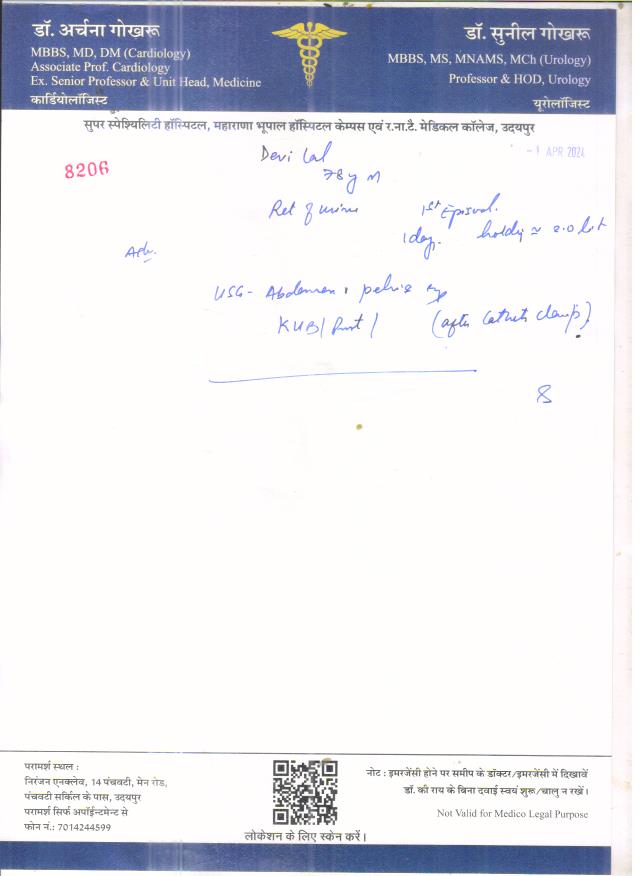 डॉ. अर्चना गोखरू
MBBS, MD, DM (Cardiology)
Associate Prof. Cardiology
Ex. Senior Professor & Unit Head, Medicine
कार्डियोलॉजिस्ट
डॉ. सुनील गोखरू
MBBS, MS, MNAMS, MCh (Urology)
Professor & HOD, Urology
यूरोलॉजिस्ट
सुपर स्पेश्यिलिटी हॉस्पिटल, महाराणा भूपाल हॉस्पिटल केम्पस एवं र.ना.टै. मेडिकल कॉलेज, उदयपुर
8206
- 1 APR 2024
Devi Lal
78 y M
Ret of urine 1st Episod.
1 day. holdig ≃ 2.0 lit
Adv.
USG - Abdomen & pelvis
KUB/Prost/ (after Cathet clamp).
परामर्श स्थल :
निरंजन एनक्लेव, 14 पंचवटी, मेन रोड,
पंचवटी सर्किल के पास, उदयपुर
परामर्श सिर्फ अपॉईन्टमेन्ट से
फोन नं.: 7014244599
लोकेशन के लिए स्केन करें।
नोट : इमरजेंसी होने पर समीप के डॉक्टर/इमरजेंसी में दिखावें
डॉ. की राय के बिना दवाई स्वयं शुरू/चालु न रखें।
Not Valid for Medico Legal Purpose